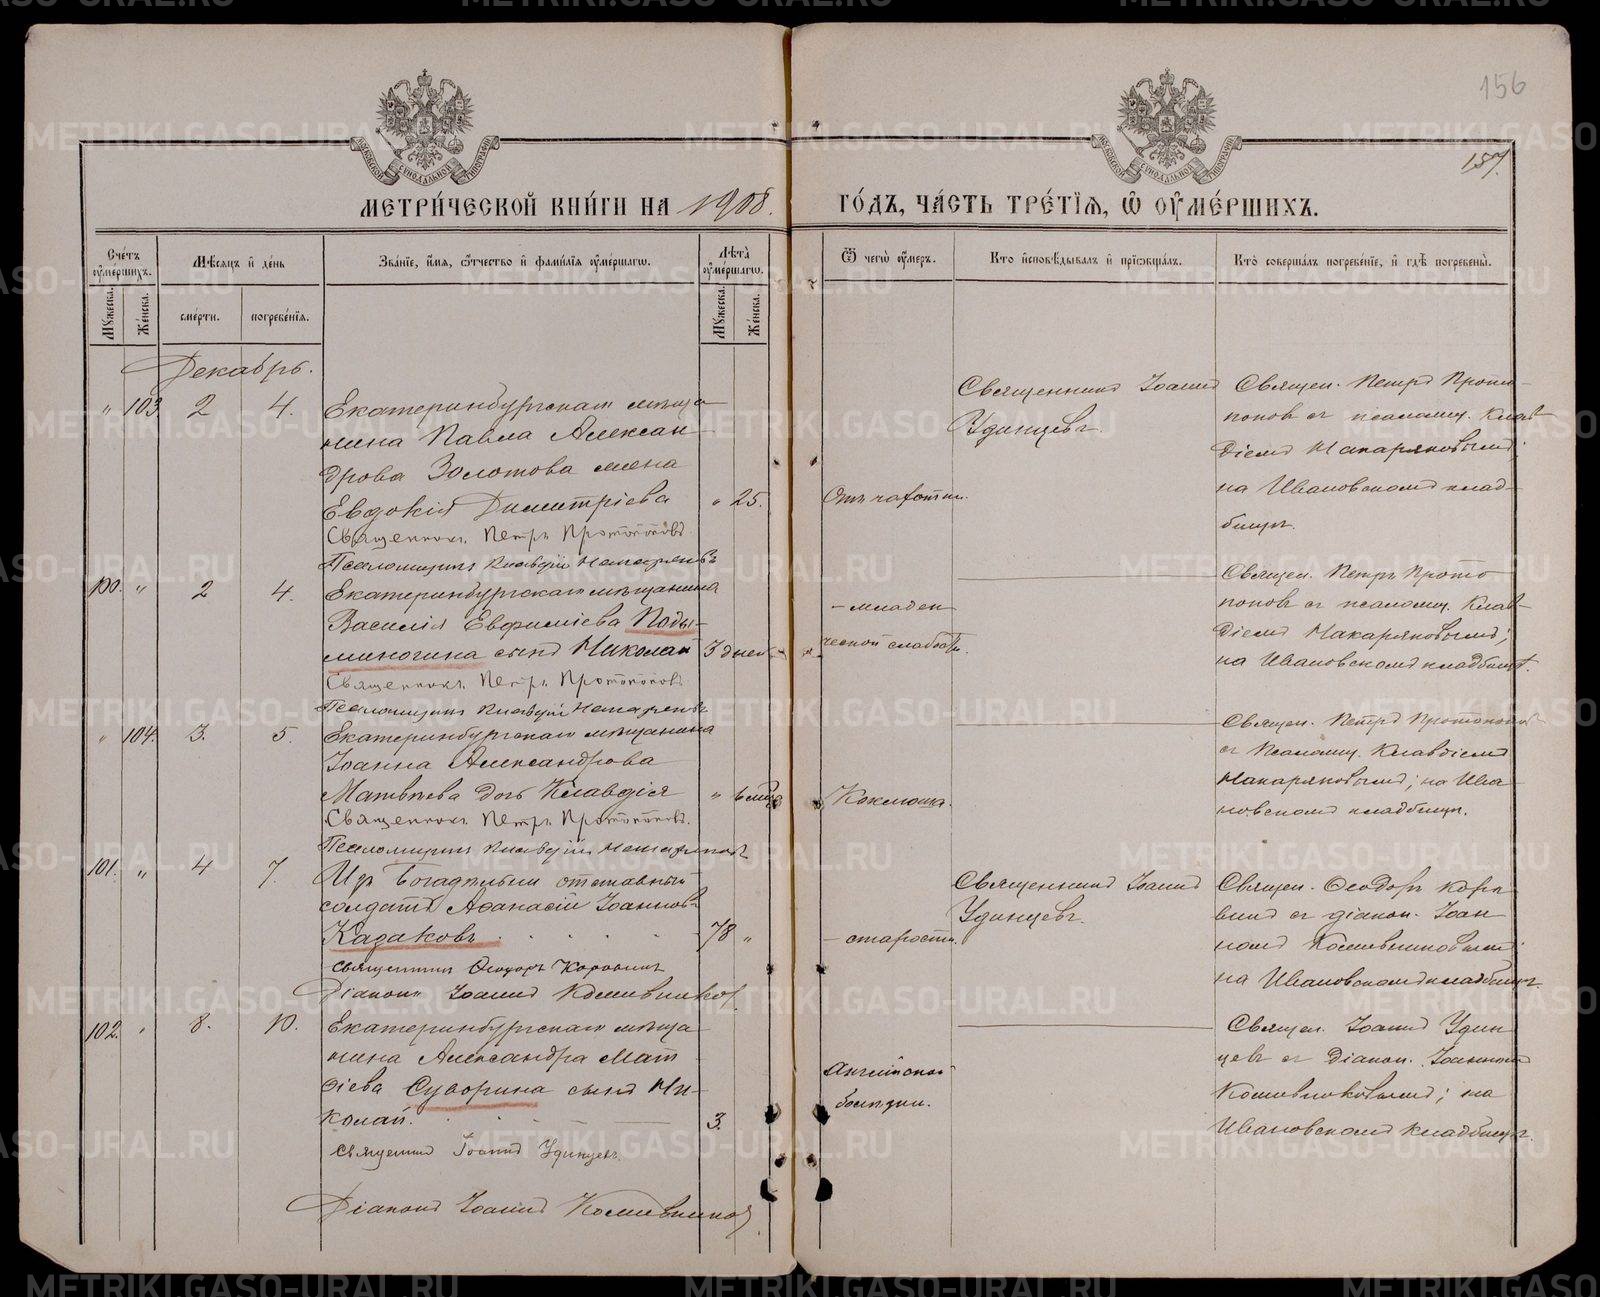 156
157.
МЕТРИ́ЧЕСКОЙ КНИ́ГИ НА 1908.
ГО́ДЪ, ЧА́СТЬ ТРЕ́ТЇѦ, Ѽ ОУ҆МЕ́РШИХЪ.
Сче́тъ оу҆ме́ршихъ.
Мꙋ́жеска.
Же́нска.
Мѣ́сѧцъ и҆ де́нь
сме́рти.
погребе́нїѧ.
Зва́нїе, и҆́мѧ, ѻ҆́тчество и҆ фами́лїѧ оу҆ме́ршагѡ.
Лѣ́та оу҆ме́ршагѡ.
Мꙋ́жеска.
Же́нска.
Ѿ чегѡ̀ оу҆́меръ.
Кто̀ и҆сповѣ́дывалъ и҆ прїѡбща́лъ.
Кто̀ соверша́лъ погребе́нїе, и҆ гдѣ̀ погребены̀.
Декабрь.
" 103 2 4.
Екатеринбургскаго мѣща-
нина Павла Алексан-
дрова Золотова жена
Евдокія Димитріева " 25.
Священникъ Петръ Протопоповъ
Отъ чахотки.
Священникъ Іоаннъ
Удинцевъ.
Священ. Петръ Прото-
поповъ съ псаломщ. Клав-
діемъ Макаряковымъ;
на Ивановскомъ клад-
бищѣ.
100. " 2 4.
Екатеринбургскаго мѣщанина
Василія Евфиміева Поды-
миногина сынъ Николай 3 дней
Священникъ Петръ Протопоповъ
– младен
ческой слабости.
Священ. Петръ Прото
поповъ съ псаломщ. Клав-
діемъ Макаряковымъ;
на Ивановскомъ кладбищѣ.
" 104. 3. 5.
Екатеринбургскаго мѣщанина
Іоанна Александрова
Матвѣева дочь Клавдія " 6 мѣс
Священникъ Петръ Протопоповъ.
Коклюша.
Священ. Петръ Протопоповъ
съ Псаломщ. Клавдіемъ
Макаряковымъ; на Ива-
новскомъ кладбищѣ.
101. " 4 7.
Изъ Богадѣльни отставный
солдатъ Аѳанасій Іоанновъ
Казаковъ 78 "
Священникъ Ѳеодоръ Коровинъ
Діаконъ Іоаннъ Кошевниковъ.
– старости.
Священникъ Іоаннъ
Удинцевъ.
Священ. Ѳеодоръ Коро-
винъ съ діакон. Іоан
номъ Кошевниковымъ;
на Ивановскомъ кладбищѣ.
102. " 8. 10.
Екатеринбургскаго мѣща
нина Александра Мат
ѳіева Суворина сынъ Ни-
колай. 3.
Священникъ Іоаннъ Удинцевъ.
Діаконъ Іоаннъ Кошевниковъ.
Англійской
болѣзни.
Священ. Іоаннъ Удин
цевъ съ Діакон. Іоанномъ
Кошевниковымъ; на
Ивановскомъ кладбищѣ.
METRIKI.GASO-URAL.RU